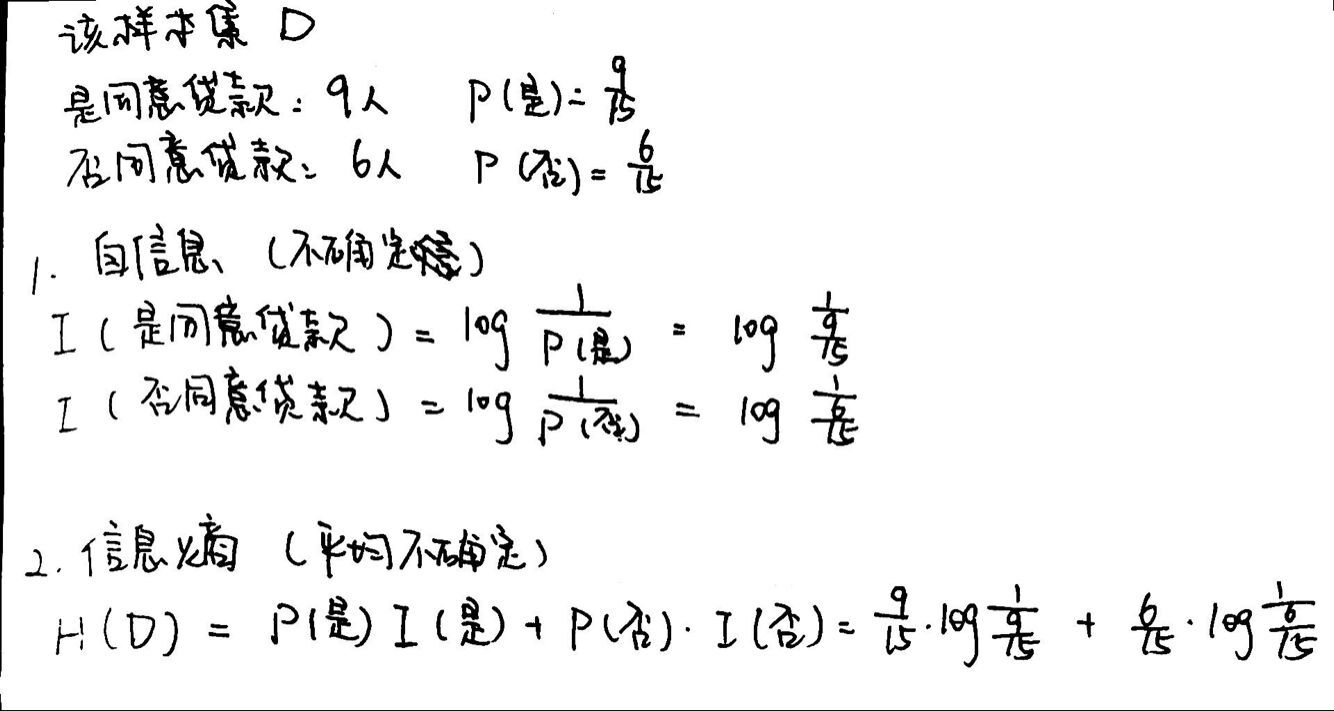 该样本集 D
是同意贷款：9人 P(是)= 9/15
否同意贷款：6人 P(否)= 6/15
1. 自信息、(不确定)
I (是同意贷款) = log 1/P(是) = log 1/(9/15)
I (否同意贷款) = log 1/P(否) = log 1/(6/15)
2. 信息熵 (平均不确定)
H(D) = P(是) I(是) + P(否)·I(否) = 9/15·log 1/(9/15) + 6/15·log 1/(6/15)